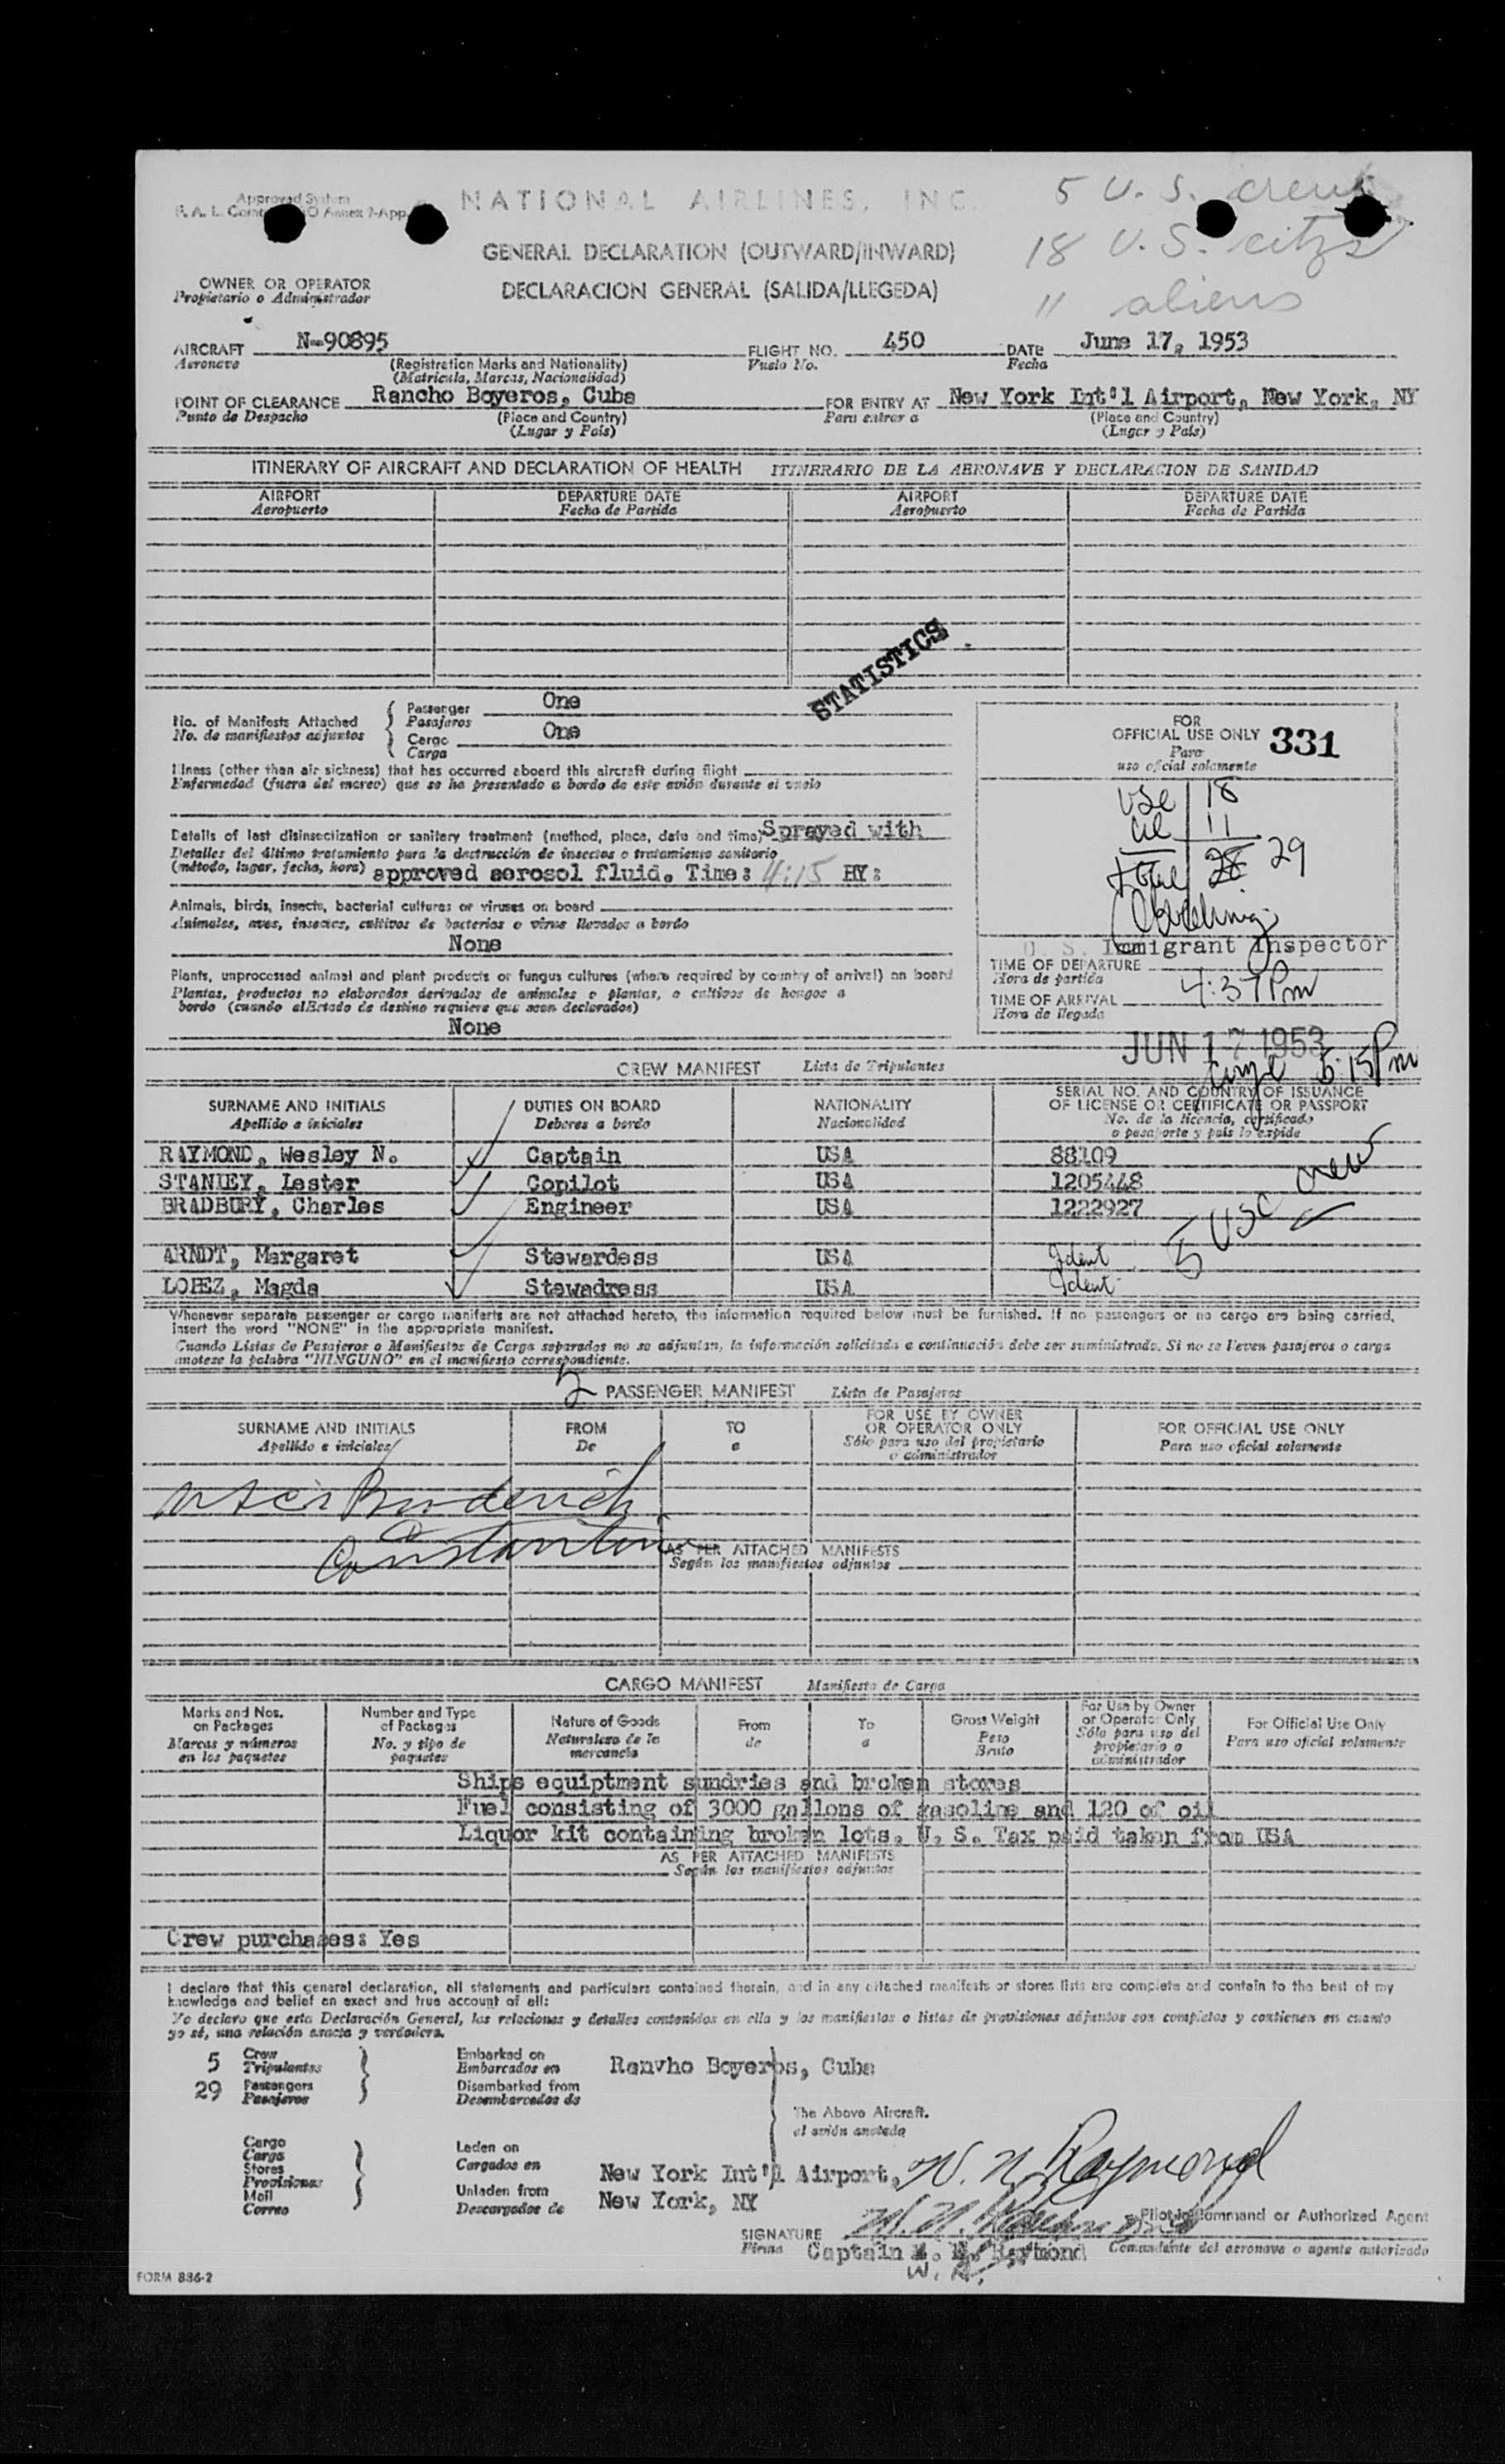 Approved System
NATIONAL AIRLINES, INC.
5 U. S. crew
18 U. S. citzs
11 aliens
GENERAL DECLARATION (OUTWARD/INWARD)
DECLARACION GENERAL (SALIDA/LLEGEDA)
OWNER OR OPERATOR
Propietario o Administrador
AIRCRAFT N-90895 FLIGHT NO. 450 DATE June 17, 1953
Aeronave (Registration Marks and Nationality) Vuelo No. Fecha
(Matricula, Marcas, Nacionalidad)
POINT OF CLEARANCE Rancho Boyeros, Cuba FOR ENTRY AT New York Int'l Airport, New York, NY
Punto de Despacho (Place and Country) Para entrar a (Place and Country)
(Lugar y Pais) (Lugar y Pais)
ITINERARY OF AIRCRAFT AND DECLARATION OF HEALTH ITINERARIO DE LA AERONAVE Y DECLARACION DE SANIDAD
AIRPORT DEPARTURE DATE AIRPORT DEPARTURE DATE
Aeropuerto Fecha de Partida Aeropuerto Fecha de Partida
STATISTICS
No. of Manifests Attached Passenger One
No. de manifiestos adjuntos Pasajeros
Cargo One
Carga
FOR
OFFICIAL USE ONLY 331
Para
uso oficial solamente
Illness (other than air sickness) that has occurred aboard this aircraft during flight
Enfermedad (fuera del mareo) que se ha presentado a bordo de este avión durante el vuelo
USC 18
al 11
total 28 29
Details of last disinsectization or sanitary treatment (method, place, date and time) Sprayed with
Detalles del último tratamiento para la destrucción de insectos o tratamiento sanitario
(método, lugar, fecha, hora) approved aerosol fluid. Time: 4:15 BY:
Animals, birds, insects, bacterial cultures or viruses on board
Animales, aves, insectos, cultivos de bacterias o virus llevados a bordo
None
U. S. Immigrant Inspector
TIME OF DEPARTURE
Hora de partida
TIME OF ARRIVAL 4:37 Pm
Hora de llegada
Plants, unprocessed animal and plant products or fungus cultures (where required by country of arrival) on board
Plantas, productos no elaborados derivados de animales o plantas, o cultivos de hongos a
bordo (cuando el Estado de destino requiere que sean declarados)
None
JUN 17 1953
5:15 Pm
CREW MANIFEST Lista de Tripulantes
SURNAME AND INITIALS DUTIES ON BOARD NATIONALITY SERIAL NO. AND COUNTRY OF ISSUANCE
OF LICENSE OR CERTIFICATE OR PASSPORT
Apellido e iniciales Deberes a bordo Nacionalidad No. de la licencia, certificado
o pasaporte y pais lo expide
RAYMOND, Wesley N. Captain USA 88109
STANLEY, Lester Copilot USA 1205448
BRADBURY, Charles Engineer USA 1222927
5 USC crew
ARNDT, Margaret Stewardess USA Ident
LOPEZ, Magda Stewadress USA Ident
Whenever separate passenger or cargo manifests are not attached hereto, the information required below must be furnished. If no passengers or no cargo are being carried,
insert the word "NONE" in the appropriate manifest.
Cuando Listas de Pasajeros o Manifiestos de Carga separados no se adjuntan, la información solicitada a continuación debe ser suministrada. Si no se lleven pasajeros o carga
anotese la palabra "NINGUNO" en el manifiesto correspondiente.
PASSENGER MANIFEST Lista de Pasajeros
SURNAME AND INITIALS FROM TO FOR USE BY OWNER
OR OPERATOR ONLY FOR OFFICIAL USE ONLY
Apellido e iniciales De a Sólo para uso del propietario
o administrador Para uso oficial solamente
Broderick
Constantino
AS PER ATTACHED MANIFESTS
Según los manifiestos adjuntos
CARGO MANIFEST Manifiesto de Carga
Marks and Nos.
on Packages
Marcas y números
en los paquetes
Number and Type
of Packages
No. y tipo de
paquetes
Nature of Goods
Naturaleza de la
mercancia
From
de
To
a
Gross Weight
Peso
Bruto
For Use by Owner
or Operator Only
Sólo para uso del
propietario o
administrador
For Official Use Only
Para uso oficial solamente
Ships equiptment sundries and broken stores
Fuel consisting of 3000 gallons of gasoline and 120 of oil
Liquor kit containing broken lots. U. S. Tax paid taken from USA
AS PER ATTACHED MANIFESTS
Según los manifiestos adjuntos
Crew purchases: Yes
I declare that this general declaration, all statements and particulars contained therein, and in any attached manifests or stores lists are complete and contain to the best of my
knowledge and belief an exact and true account of all:
Yo declaro que esta Declaración General, las relaciones y detalles contenidos en ella y los manifiestos o listas de provisiones adjuntos son completos y contienen en cuanto
yo sé, una relación exacta y verdadera.
5 Crew
Tripulantes
29 Passengers
Pasajeros
Embarked on
Embarcados en
Disembarked from
Desembarcados de
Ranvho Boyeros, Cuba
The Above Aircraft.
el avión anotado
Cargo
Carga
Stores
Provisiones
Mail
Correo
Laden on
Cargados en
Unladen from
Descargados de
New York Int'l Airport,
New York, NY
W. N. Raymond
Pilot in Command or Authorized Agent
SIGNATURE
Firma Captain W. N. Raymond Comandante del aeronave o agente autorizado
W. N.
FORM 886-2